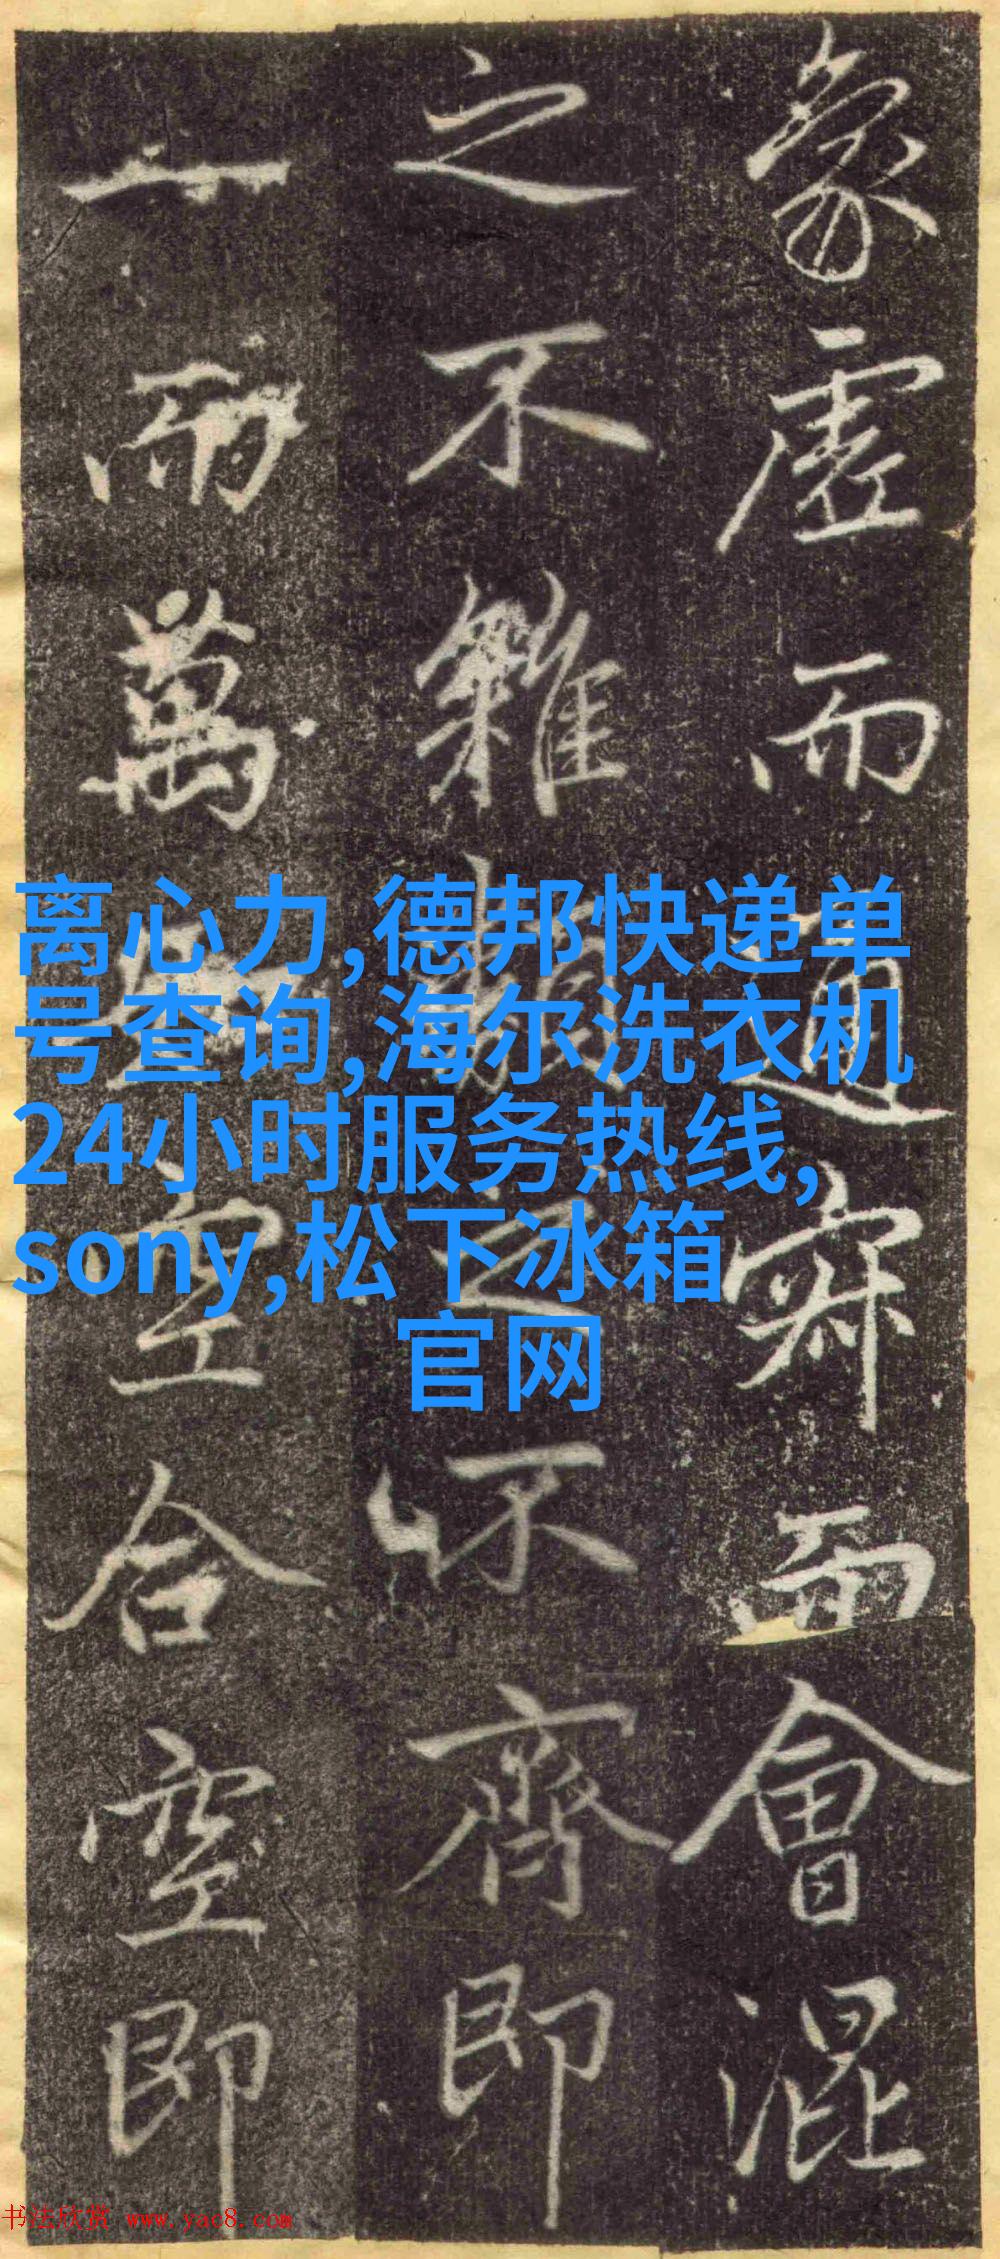 象虛而寂而會混
之不雜之不齊即
一而萬空合空即
离心力,德邦快递单
号查询,海尔洗衣机
24小时服务热线,
sony,松下冰箱
官网
书法欣赏 www.yac8.com